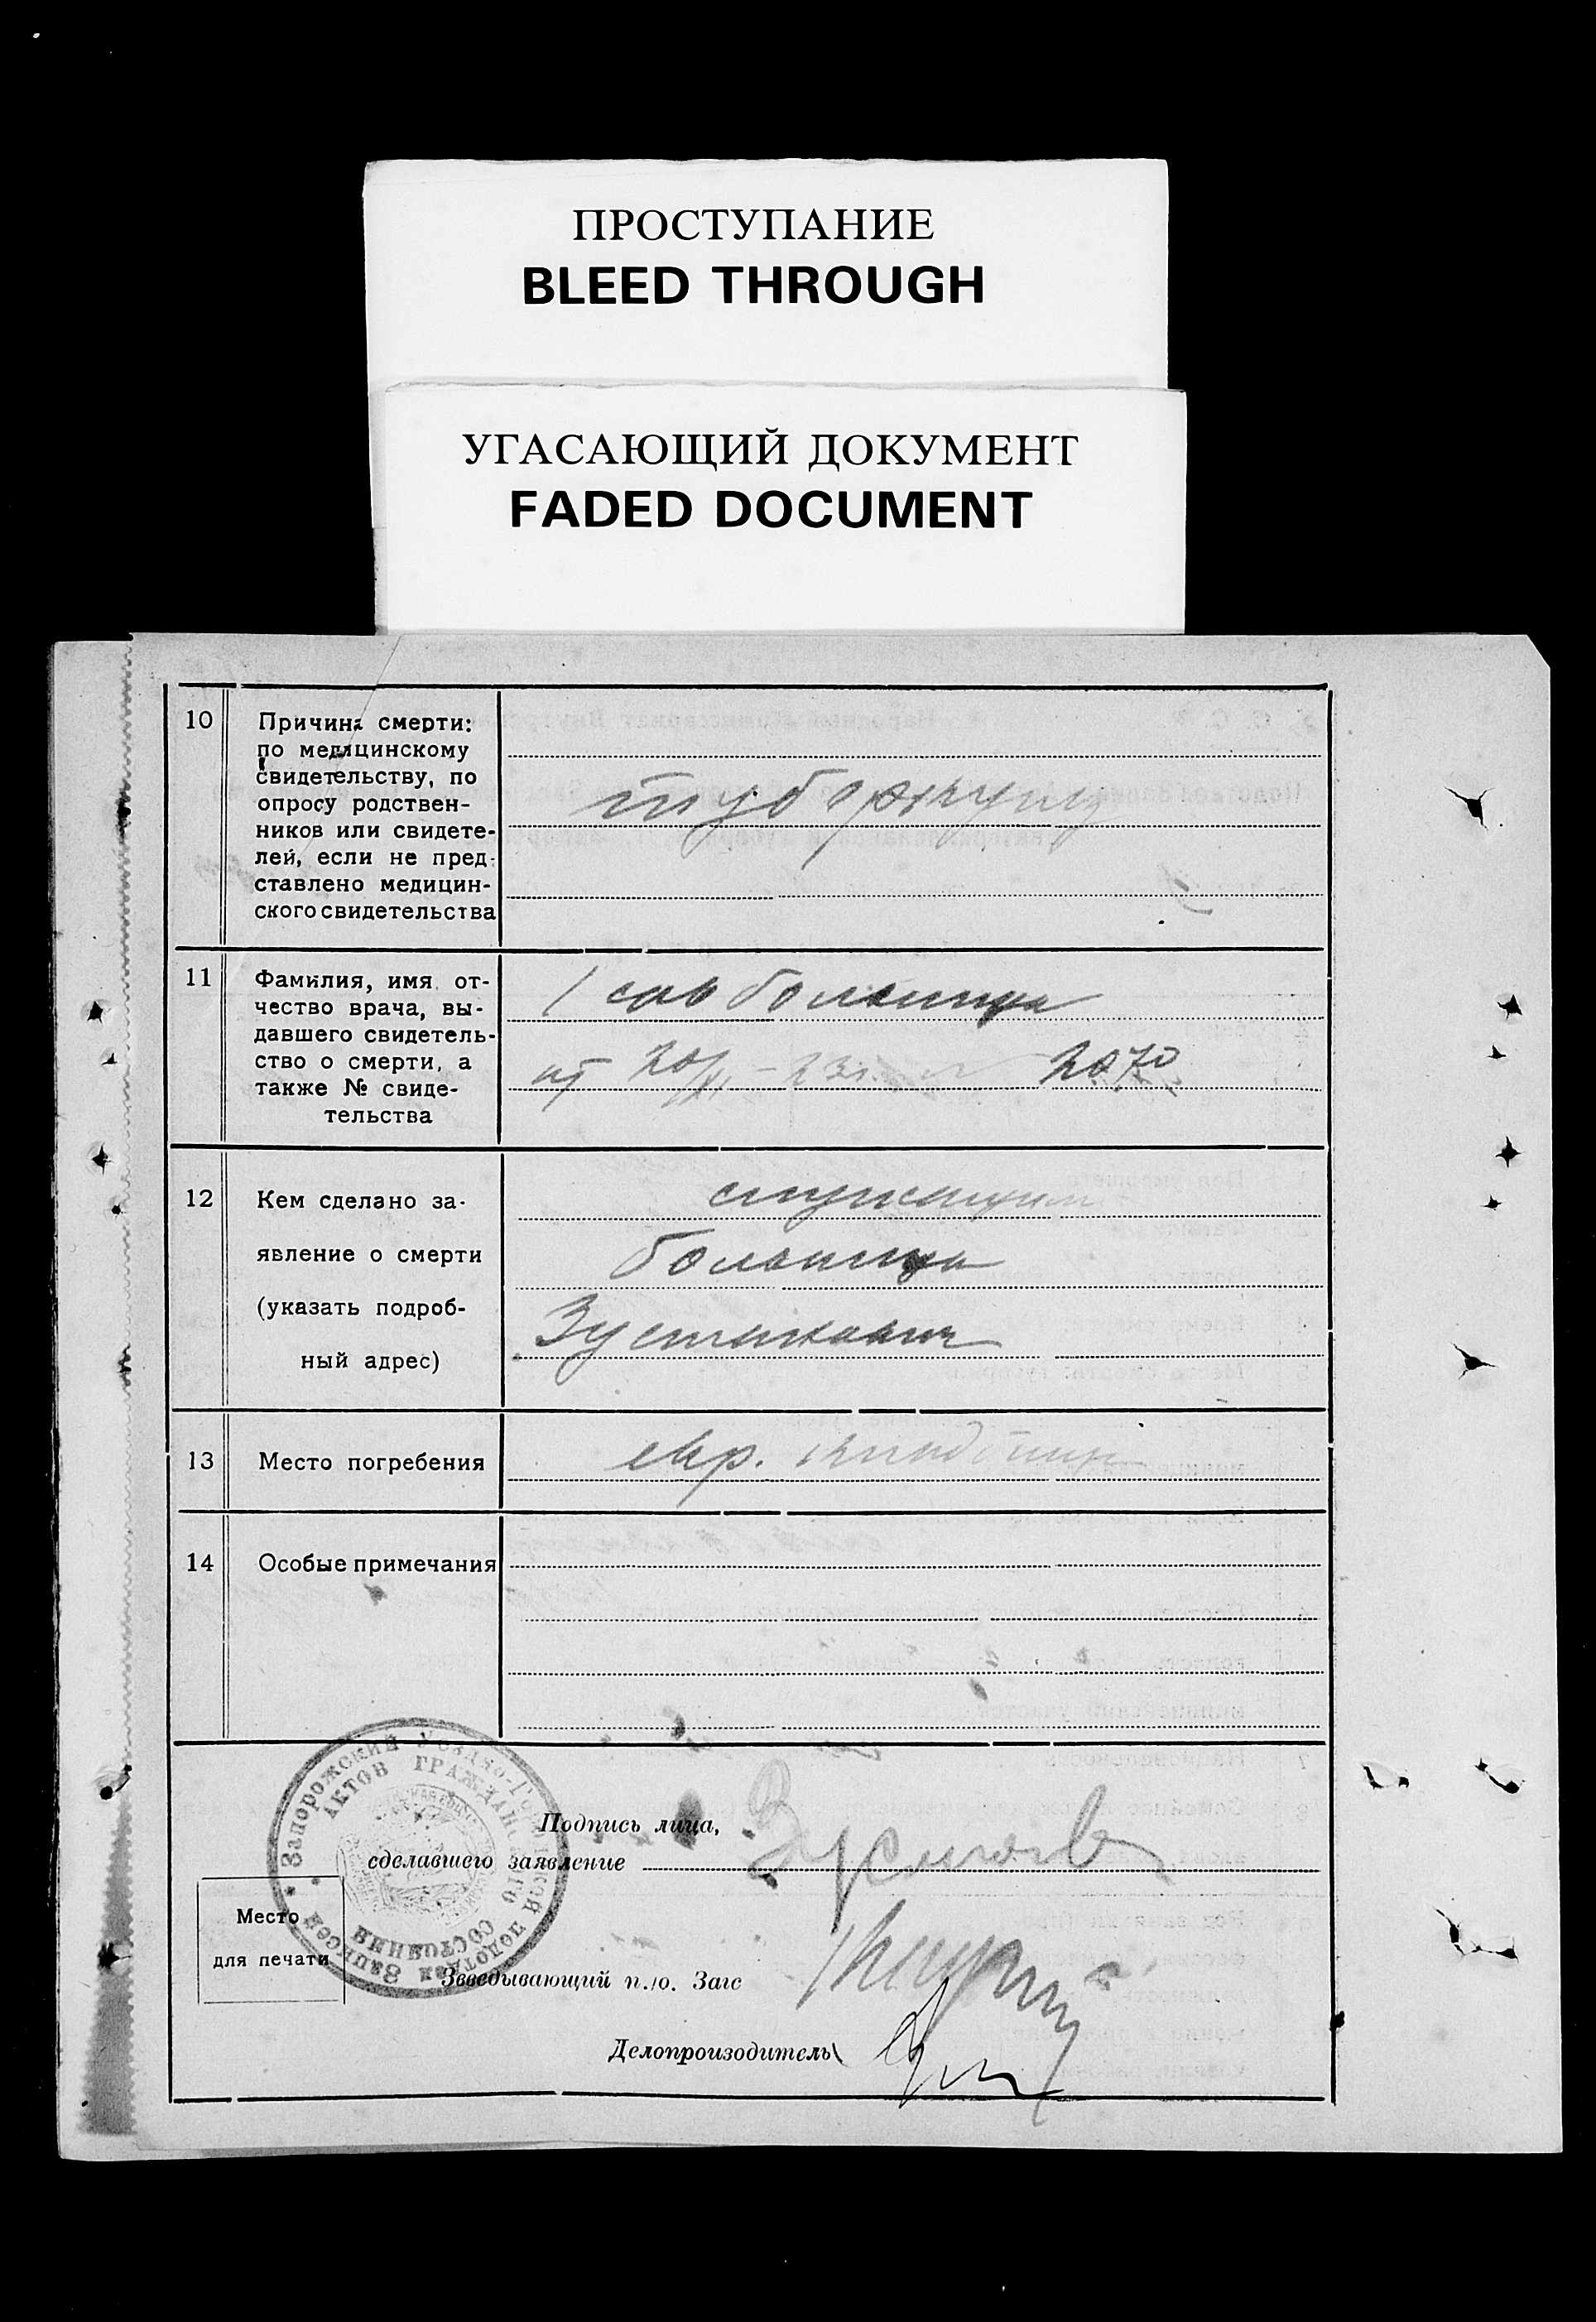 ПРОСТУПАНИЕ
BLEED THROUGH
УГАСАЮЩИЙ ДОКУМЕНТ
FADED DOCUMENT
10
Причина смерти:
по медицинскому
свидетельству, по
опросу родствен-
ников или свидете-
лей, если не пред-
ставлено медицин-
ского свидетельства
туберкулез
11
Фамилия, имя от-
чество врача, вы-
давшего свидетель-
ство о смерти, а
также № свиде-
тельства
1 сов больница
от 20/XI-23г. 2070
12
Кем сделано за-
явление о смерти
(указать подроб-
ный адрес)
служащим
больницы
13
Место погребения
евр. кладбище
14
Особые примечания
Запорожский Уездно-Городской подотдел Записей
АКТОВ ГРАЖДАНСКОГО СОСТОЯНИЯ
Подпись лица,
сделавшего заявление
Место
для печати
Зввedывающий п./о. Загс
Делопроизодитель